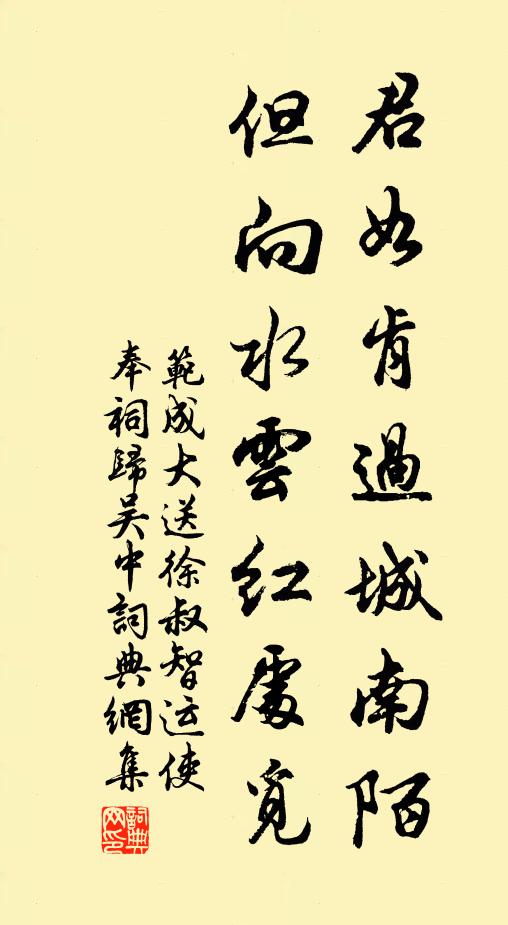 君如肯過城南陌
但向水雲紅處覓
範成大送徐叔智运使
奉祠歸吴中詞典網集
詞典网印